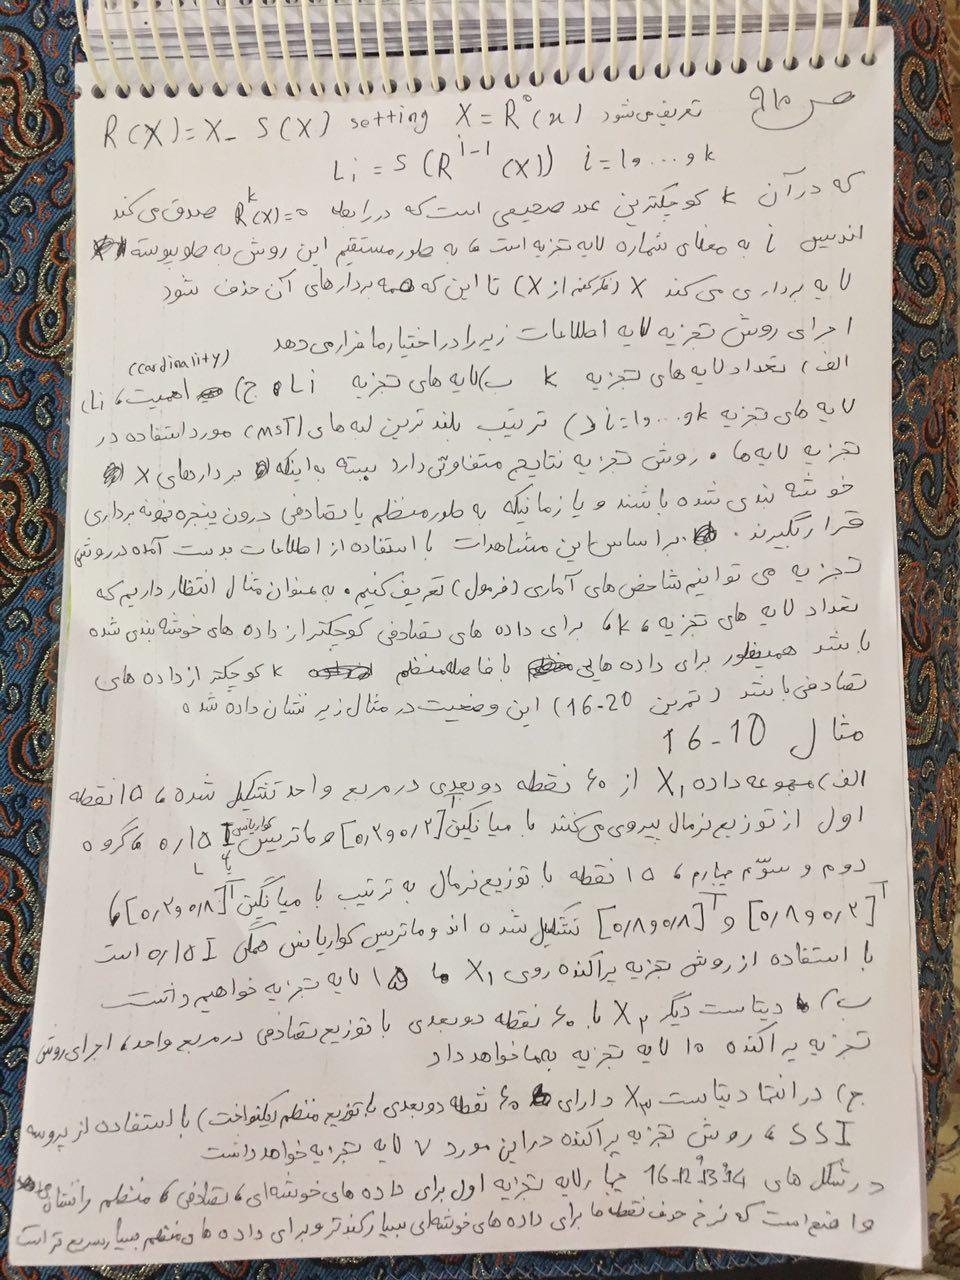 ص ۹۱۰
R(X) = X - S(X) setting X = R°(x) تعریف می شود
Li = S (R^{i-1} (X)) i = 1, ..., k
که در آن k کوچکترین عدد صحیحی است که در رابطه R^k(X)=0 صدق می کند
اندیس i به معنای شماره لایه تجزیه است، به طور مستقیم این روش به طور پیوسته
لایه برداری می کند X (فکر کنم از X) تا این که همه بردارهای آن حذف شود
اجرای روش تجزیه لایه اطلاعات زیر را در اختیار ما قرار می دهد
(cardinality)
الف) تعداد لایه های تجزیه k ب) لایه های تجزیه Li ج) اهمیت، Li،
لایه های تجزیه i=1,...,k د) ترتیب بلند ترین لبه های (MST) مورد استفاده در
تجزیه لایه ها. روش تجزیه نتایج متفاوتی دارد بسته به اینکه بردارهای X
خوشه بندی شده باشند و یا زمانیکه به طور منظم یا تصادفی درون پنجره نمونه برداری
قرار بگیرند. بر اساس این مشاهدات با استفاده از اطلاعات بدست آمده در روش
تجزیه می توانیم شاخص های آماری (فرمول) تعریف کنیم. به عنوان مثال انتظار داریم که
تعداد لایه های تجزیه، k، برای داده های تصادفی کوچکتر از داده های خوشه بندی شده
باشد همینطور برای داده هایی با فاصله منظم k کوچکتر از داده های
تصادفی باشد (تمرین 16-20) این وضعیت در مثال زیر نشان داده شده
مثال 16-10
الف) مجموعه داده X۱ از ۶۰ نقطه دو بعدی در مربع واحد تشکیل شده، ۱۵ نقطه
اول از توزیع نرمال پیروی می کنند با میانگین [۰/۲و۰/۲]^T و ماتریس کواریانس ۰/۱۵ I، گروه
دوم و سوّم چهارم، ۱۵ نقطه با توزیع نرمال به ترتیب با میانگین [۰/۲و۰/۸]^T،
[۰/۸و۰/۲]^T و [۰/۸و۰/۸]^T تشکیل شده اند و ماتریس کواریانس همگی ۰/۱۵ I است
با استفاده از روش تجزیه پراکنده روی X۱ ما ۱۵ لایه تجزیه خواهیم داشت
ب) دیتاست دیگر X۲ با ۶۰ نقطه دو بعدی با توزیع تصادفی در مربع واحد، اجرای روش
تجزیه پراکنده ۱۰ لایه تجزیه به ما خواهد داد
ج) در انتها دیتاست X۳ دارای ۶۰ نقطه دو بعدی با توزیع منظم (یکنواخت) با استفاده از پروسه
SSI، روش تجزیه پراکنده در این مورد ۷ لایه تجزیه خواهد داشت
در شکل های 16-12،13،14 چهار لایه تجزیه اول برای داده های خوشه ای، تصادفی، منظم را نشان
واضح است که نرخ حذف نقطه ها برای داده های خوشه ای بسیار کندتر و برای داده های منظم بسیار سریع تر است